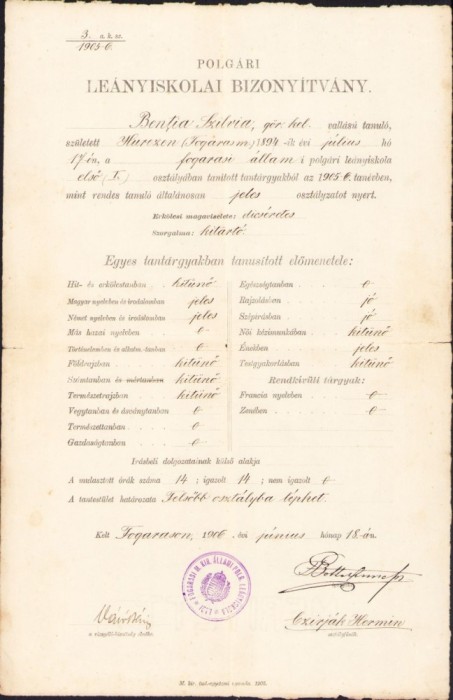 3. a. k. sz.
1905-6.
POLGÁRI
LEÁNYISKOLAI BIZONYÍTVÁNY.
Bentia Szilvia, gör. kel. vallású tanuló,
született Hurezen (Fogarasm.) 1894-ik évi július hó
17-én, a fogarasi állami polgári leányiskola
első (I.) osztályában tanított tantárgyakból az 1905-6. tanévben,
mint rendes tanuló általánosan jeles osztályzatot nyert.
Erkölcsi magaviselete: dicséretes
Szorgalma: kitartó.
Egyes tantárgyakban tanusított előmenetele:
Hit- és erkölcstanban kitünő
Magyar nyelvben és irodalomban jeles
Német nyelvben és irodalomban jeles
Más hazai nyelvben 0
Történelemben és alkotm.-tanban 0
Földrajzban kitünő
Számtanban és mértanban kitünő
Természetrajzban kitünő
Vegytanban és ásványtanban 0
Természettanban 0
Gazdaságtanban 0
Egészségtanban 0
Rajzolásban jó
Szépírásban jó
Női kézimunkában kitünő
Énekben jeles
Testgyakorlásban kitünő
Rendkivüli tárgyak:
Francia nyelvben 0
Zenében 0
Irásbeli dolgozatainak külső alakja
A mulasztott órák száma 14; igazolt 14; nem igazolt 0
A tantestület határozata Felsőbb osztályba léphet.
Kelt Fogarason, 1906 évi június hónap 18-án.
FOGARASI M. KIR. ÁLLAMI POLG. LEÁNYISKOLA
Czirják Hermin
osztályfőnök.